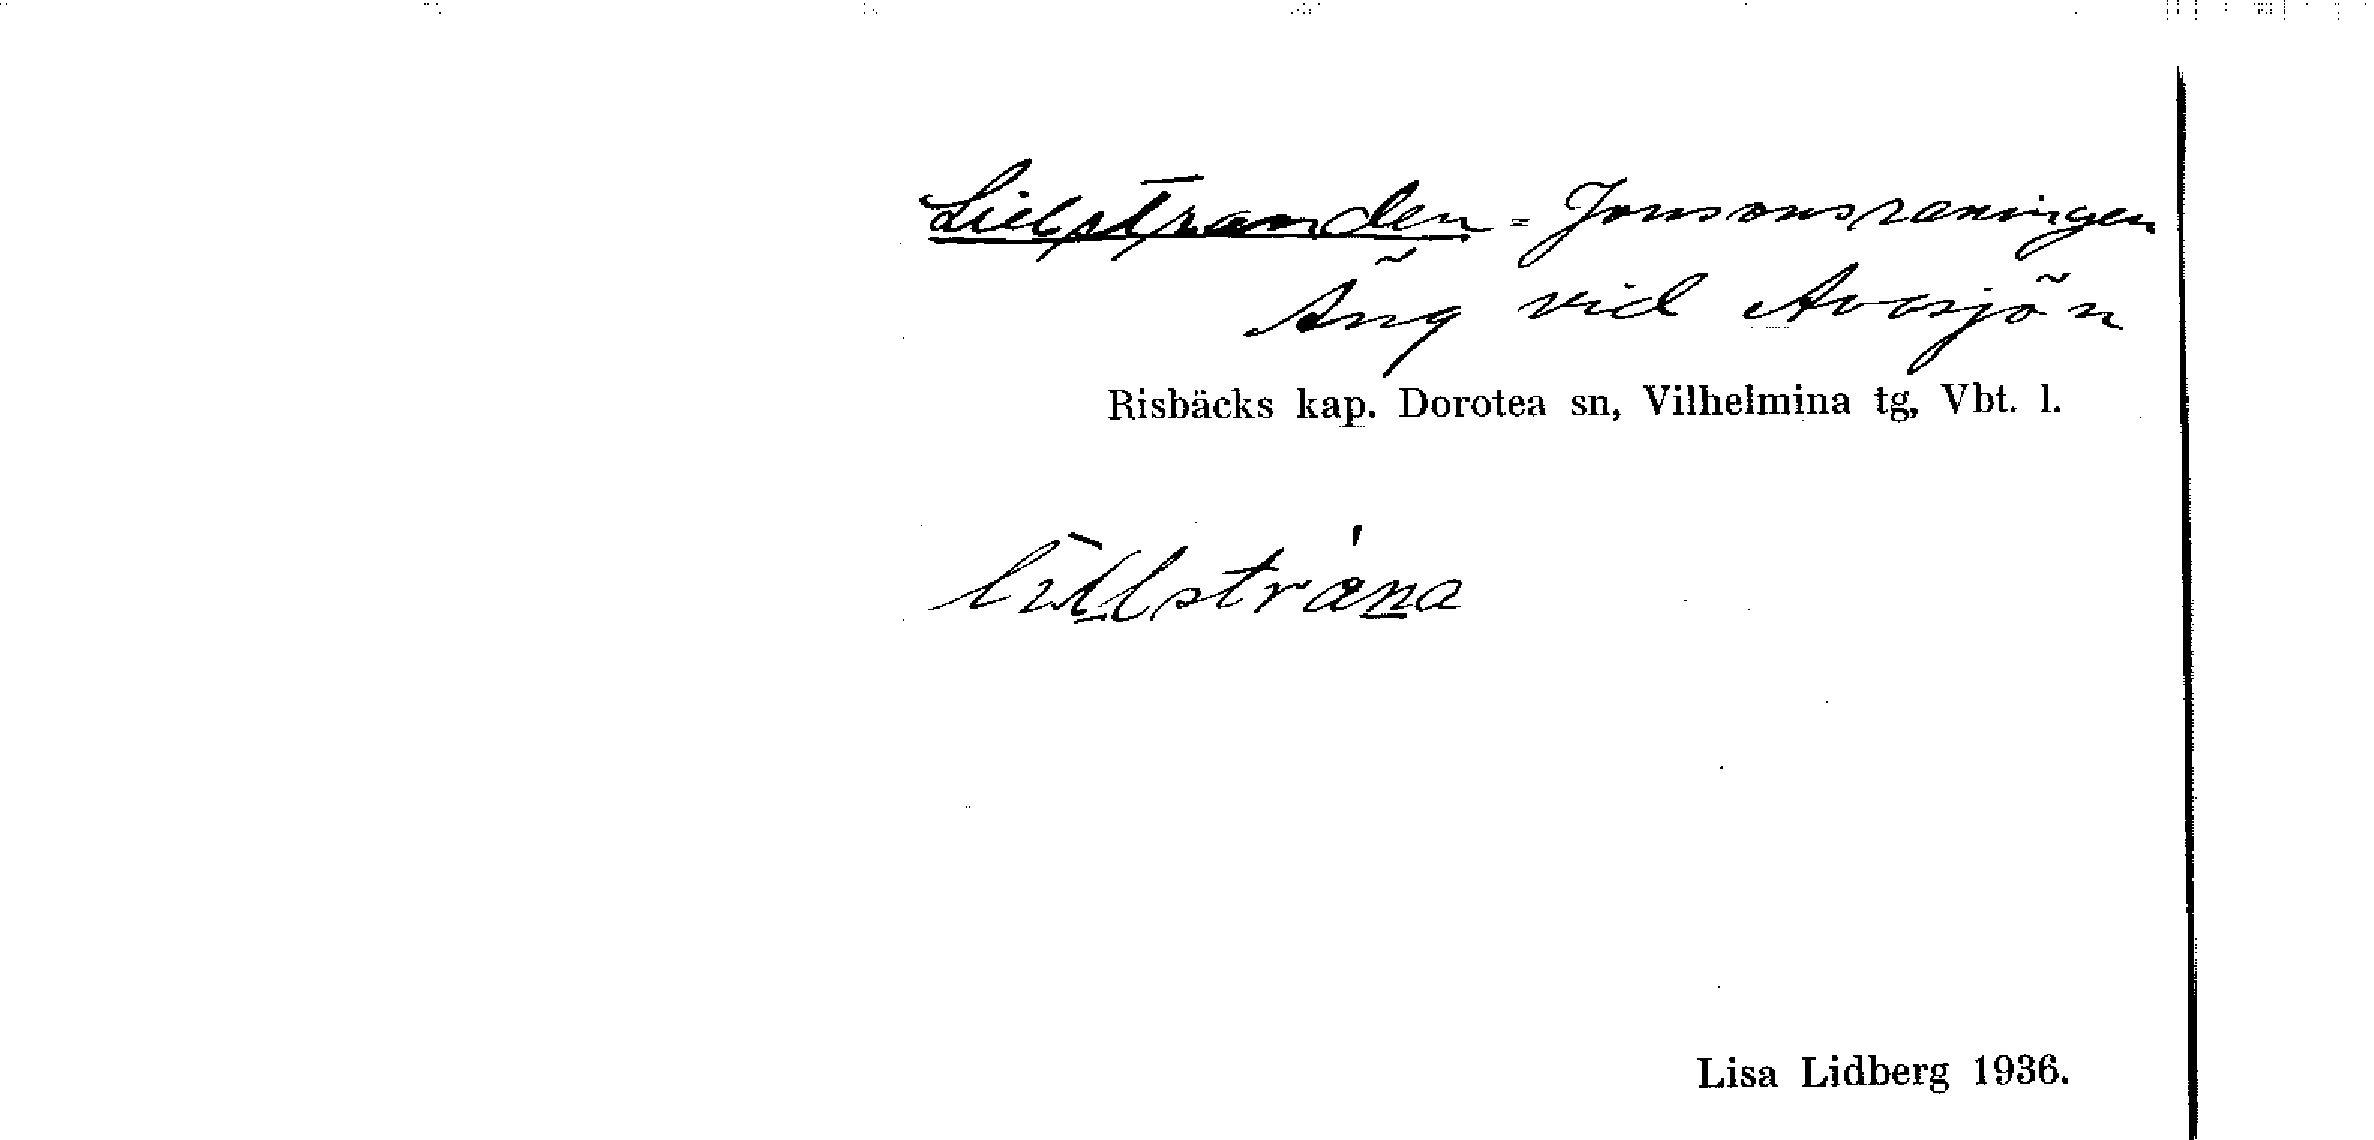 Lillstranden = Jonsonsreningen
Äng vid Avasjön
Risbäcks kap. Dorotea sn, Vilhelmina tg, Vbt. l.
Lisa Lidberg 1936.